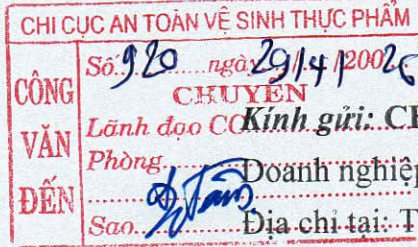 CHI CỤC AN TOÀN VỆ SINH THỰC PHẨM
CÔNG VĂN ĐẾN
Số 920 ngày 29/4/2002
CHUYỂN
Lãnh đạo CC Kính gửi:
Phòng Doanh nghiệp
Sao Địa chỉ tại: T